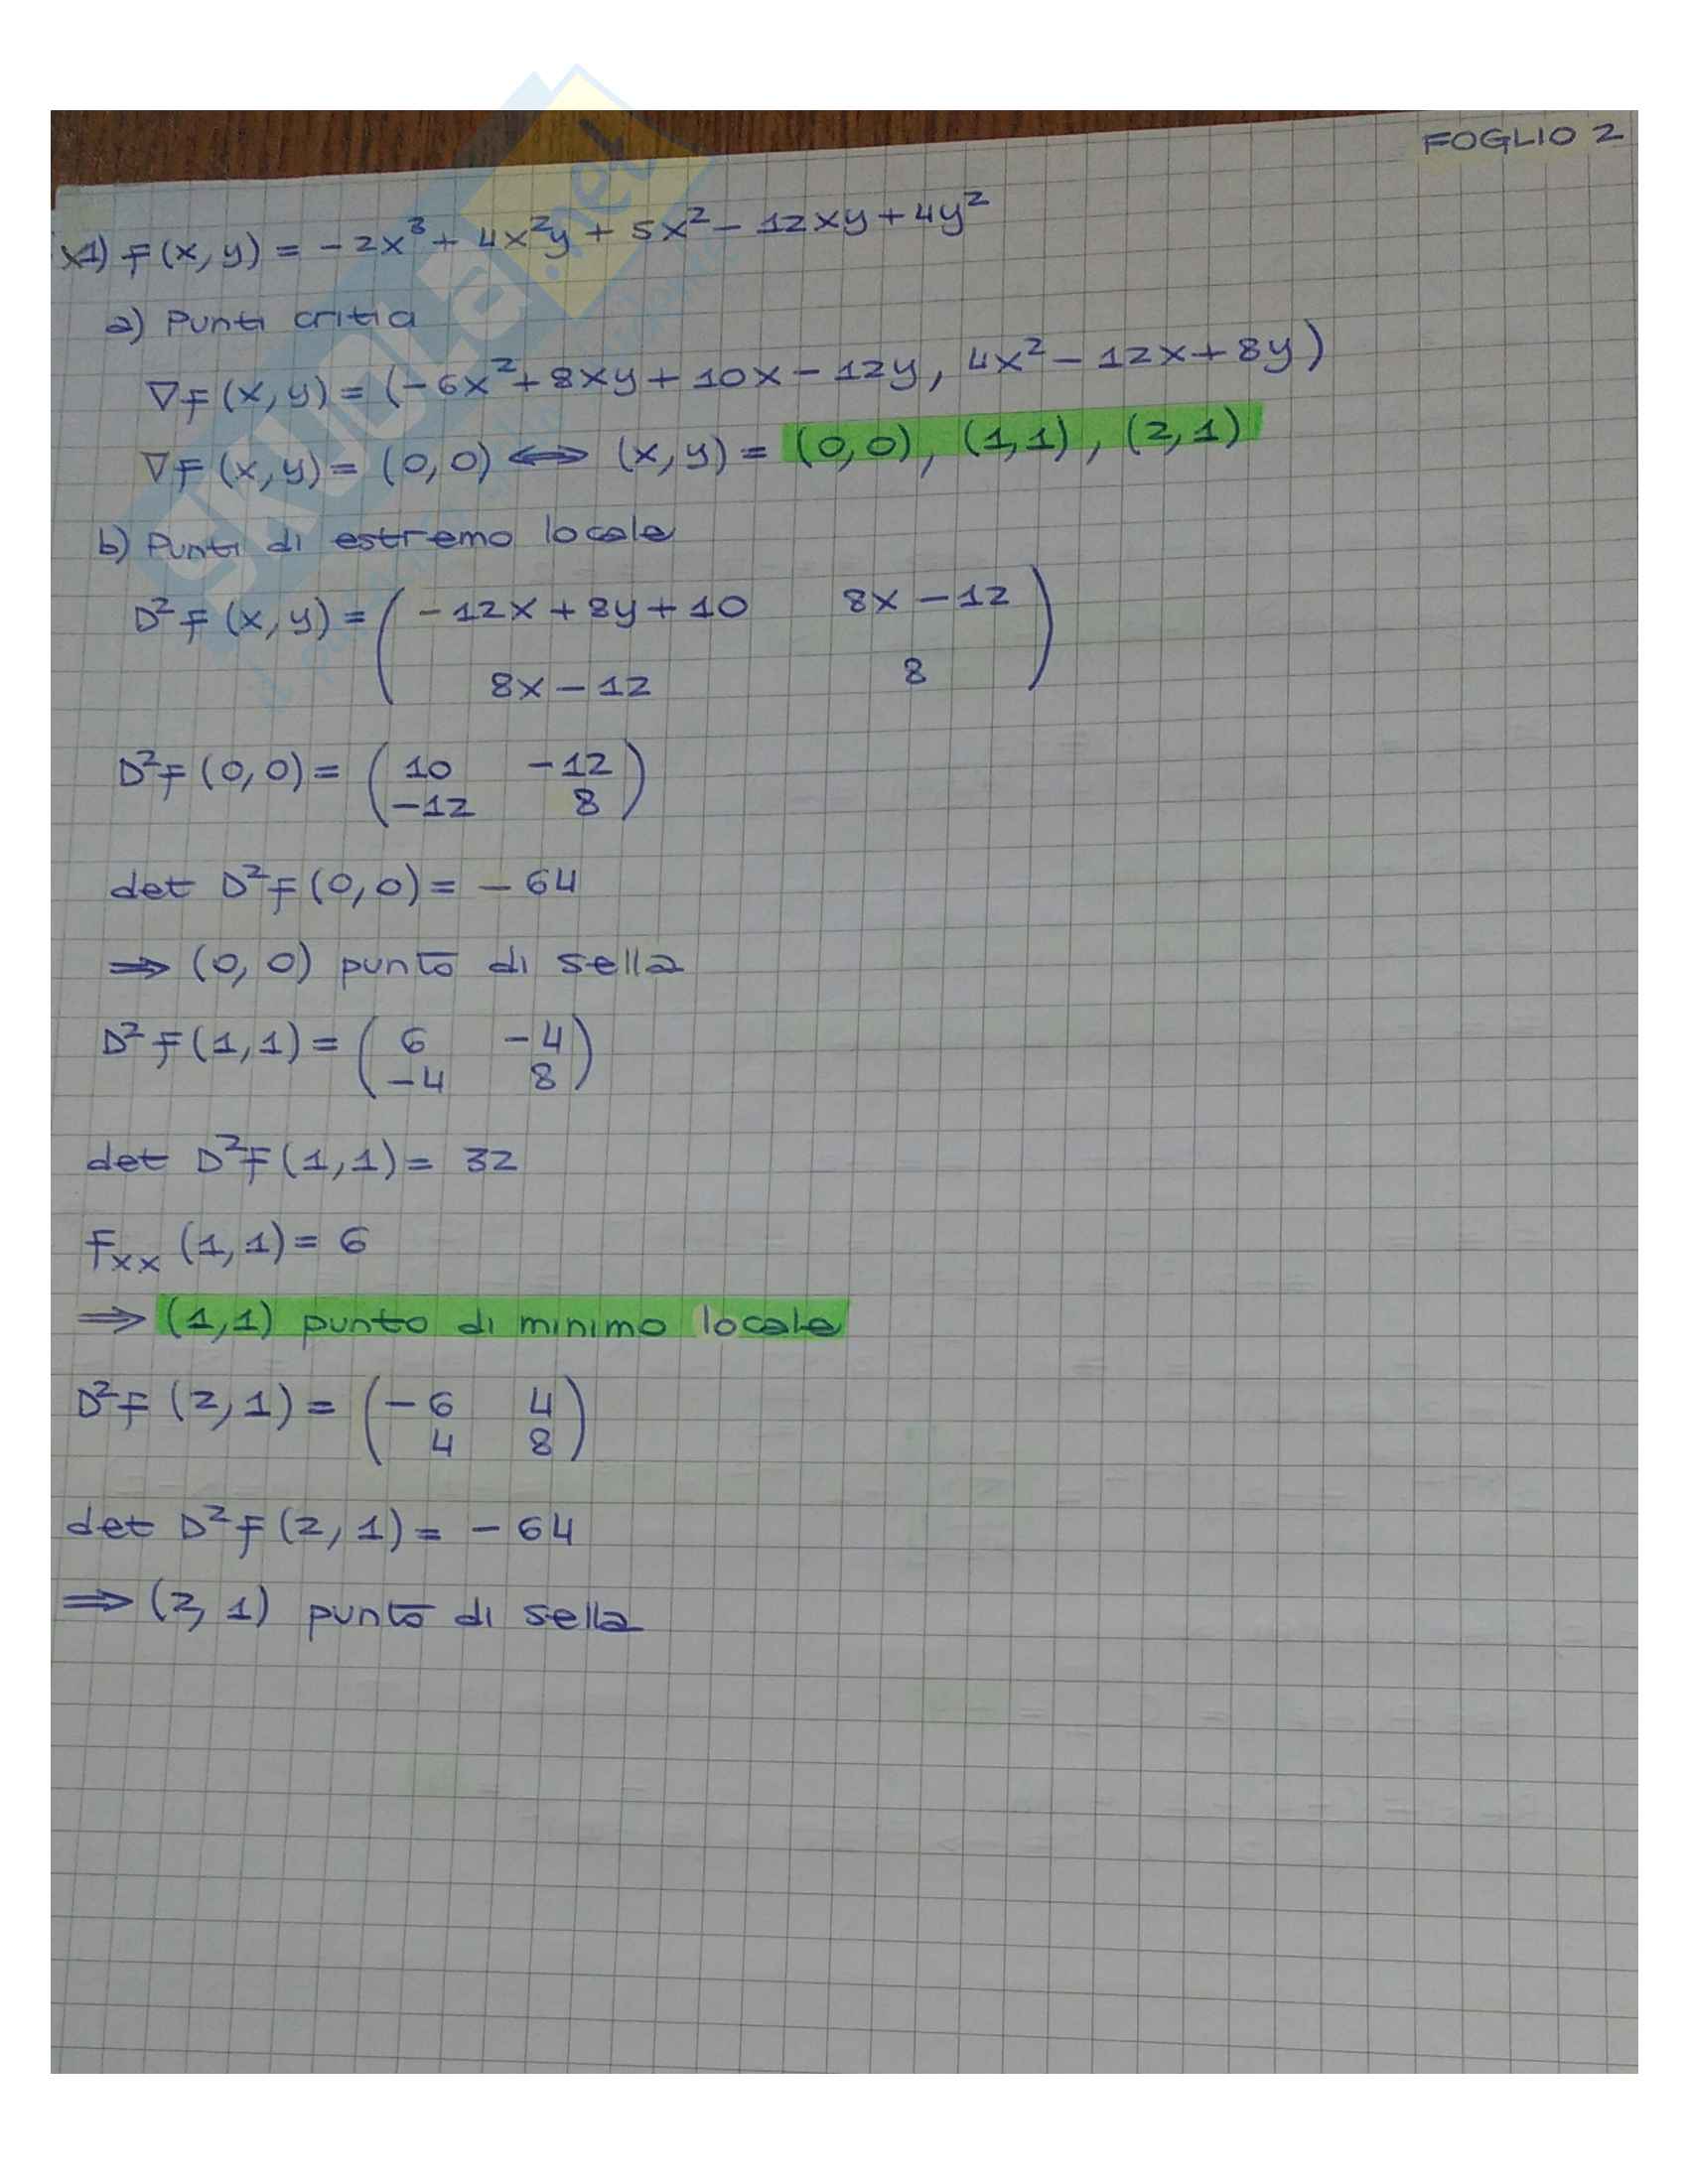 FOGLIO 2
x1) f(x,y) = -2x³ + 4x²y + 5x² - 12xy + 4y²
a) Punti critici
∇f(x,y) = (-6x² + 8xy + 10x - 12y, 4x² - 12x + 8y)
∇f(x,y) = (0,0) ⟺ (x,y) = (0,0), (1,1), (2,1)
b) Punti di estremo locale
D²f(x,y) = ( -12x + 8y + 10    8x - 12
8x - 12    8 )
D²f(0,0) = ( 10    -12
-12    8 )
det D²f(0,0) = -64
⇒ (0,0) punto di sella
D²f(1,1) = ( 6    -4
-4    8 )
det D²f(1,1) = 32
fxx (1,1) = 6
⇒ (1,1) punto di minimo locale
D²f(2,1) = ( -6    4
4    8 )
det D²f(2,1) = -64
⇒ (2,1) punto di sella
SKUOLa.net